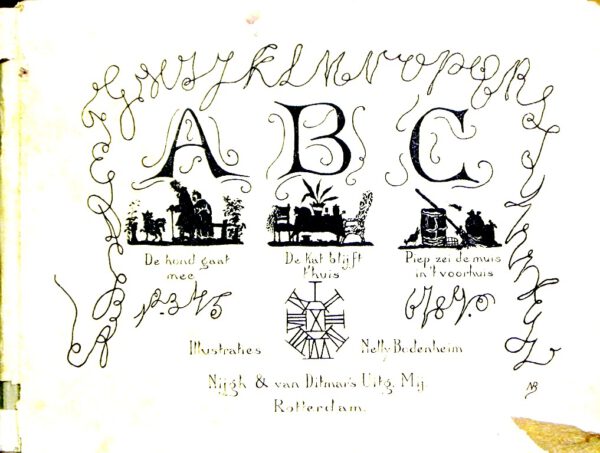 A B C
De hond gaat mee
De Kat blijft t'huis
Piep zei de muis in 't voorhuis
Illustraties Nelly Bodenheim
Nijgh & van Ditmar's Uitg. Mij.
Rotterdam.
NB